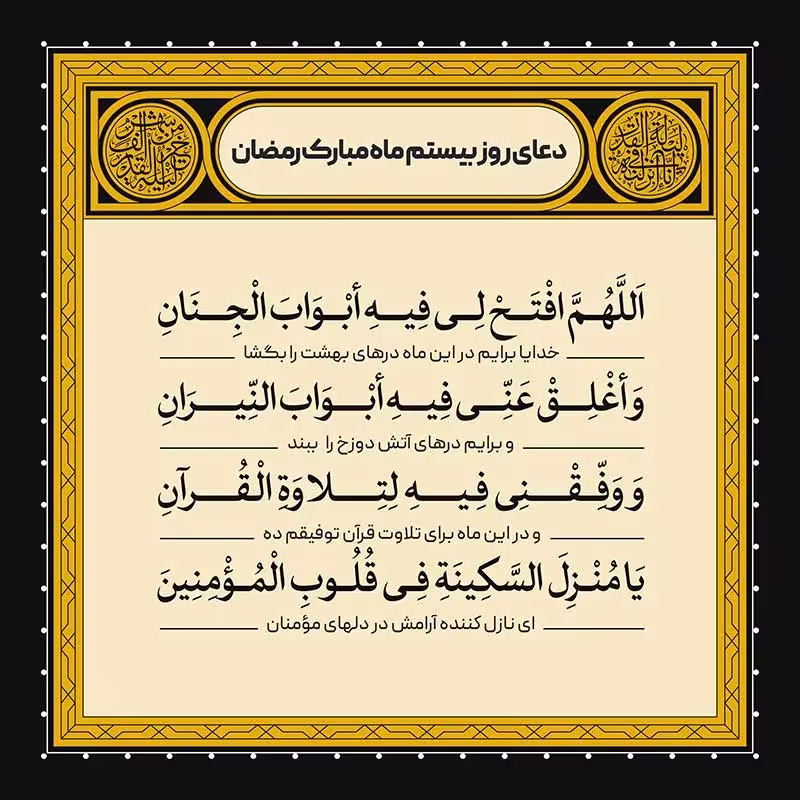 دعای روز بیستم ماه مبارک رمضان
لیلة القدر
إنا أنزلناه في
ليلة القدر
خير من ألف
شهر
اَللَّهُمَّ افْتَحْ لِي فِيهِ أبْوَابَ الْجِنَانِ
خدایا برایم در این ماه درهای بهشت را بگشا
وَأغْلِقْ عَنِّي فِيهِ أبْوَابَ النِّيرَانِ
و برایم درهای آتش دوزخ را ببند
وَ وَفِّقْنِي فِيهِ لِتِلاوَةِ الْقُرآنِ
و در این ماه برای تلاوت قرآن توفیقم ده
يَا مُنْزِلَ السَّكِينَةِ فِي قُلُوبِ الْمُؤْمِنِينَ
ای نازل کننده آرامش در دلهای مؤمنان